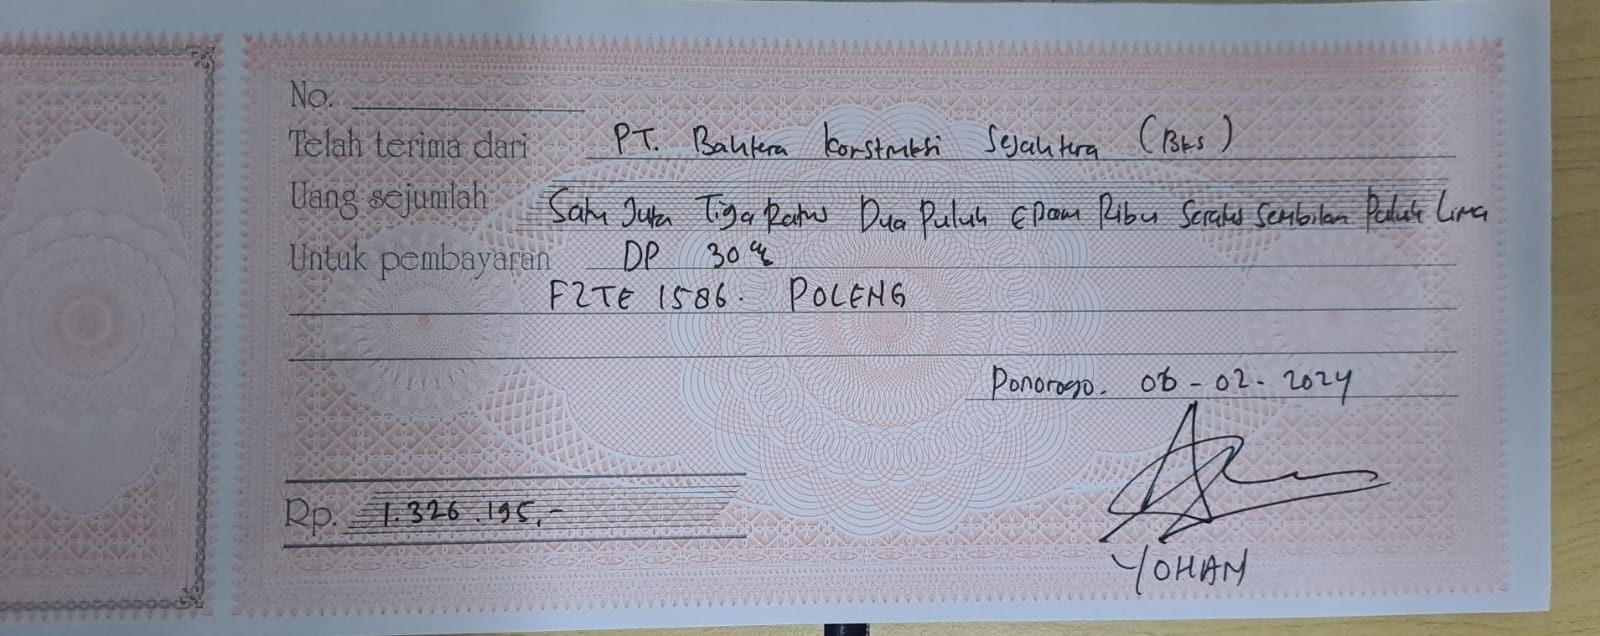 No.
Telah terima dari PT. Bahtera Konstruksi Sejahtera (Bks)
Uang sejumlah Satu Juta Tiga Ratus Dua Puluh Enam Ribu Seratus Sembilan Puluh Lima
Untuk pembayaran DP 30%
FZTE 1586. POLENG
Ponorogo. 06-02-2024
Rp. 1.326.195,-
YOHAN